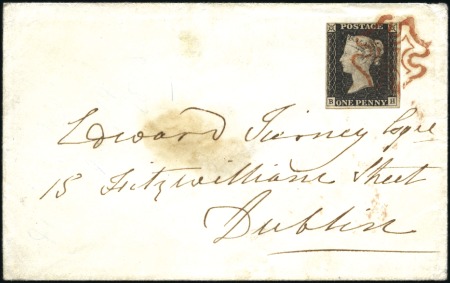 POSTAGE
B H
ONE PENNY
Edward Tierney Esqre
15 Fitzwilliam Street
Dublin